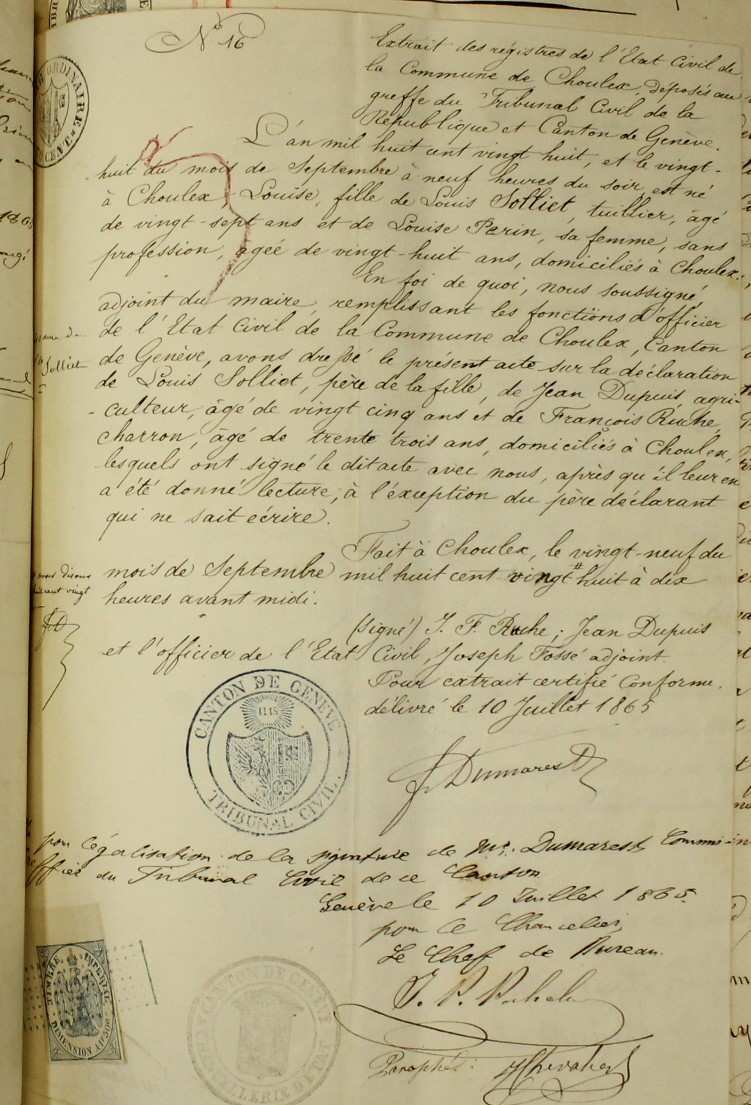 No 16
Extrait des registres de l'Etat Civil de
la Commune de Choulex, déposés au
greffe du Tribunal Civil de la
République et Canton de Genève.
L'an mil huit cent vingt huit, et le vingt-
huit du mois de Septembre à neuf heures du soir, est né
à Choulex, Louise, fille de Louis Solliet, tuillier, âgé
de vingt-sept ans et de Louise Perin, sa femme, sans
profession, agée de vingt-huit ans, domiciliés à Choulex;
En foi de quoi, nous soussigné,
adjoint du maire, remplissant les fonctions d'officier
de l'Etat Civil de la Commune de Choulex, Canton
de Genève, avons dressé le présent acte sur la déclaration
de Louis Solliet, père de la fille, de Jean Dupuis, agri-
culteur, âgé de vingt cinq ans et de François Ruche,
charron, âgé de trente trois ans, domiciliés à Choulex,
lesquels ont signé le dit acte avec nous, après qu'il leur en
a été donné lecture, à l'exception du père déclarant
qui ne sait écrire.
Fait à Choulex, le vingt-neuf du
mois de Septembre mil huit cent vingt huit à dix
heures avant midi.
(signé) J. F. Ruche; Jean Dupuis
et l'officier de l'Etat Civil, Joseph Fossé adjoint
Pour extrait certifié conforme.
délivré le 10 Juillet 1865
Dumarest
CANTON DE GENEVE
TRIBUNAL CIVIL
pour légalisation de la signature de Mr. Dumarest Commis-
du Tribunal Civil de ce Canton
Genève le 10 Juillet 1865.
pour le Chancelier,
Le Chef de Bureau.
TIMBRE IMPERIAL
DIMENSION
CANTON DE GENEVE
CHANCELLERIE D'ETAT
Paraphé: Chevalier
Solliet